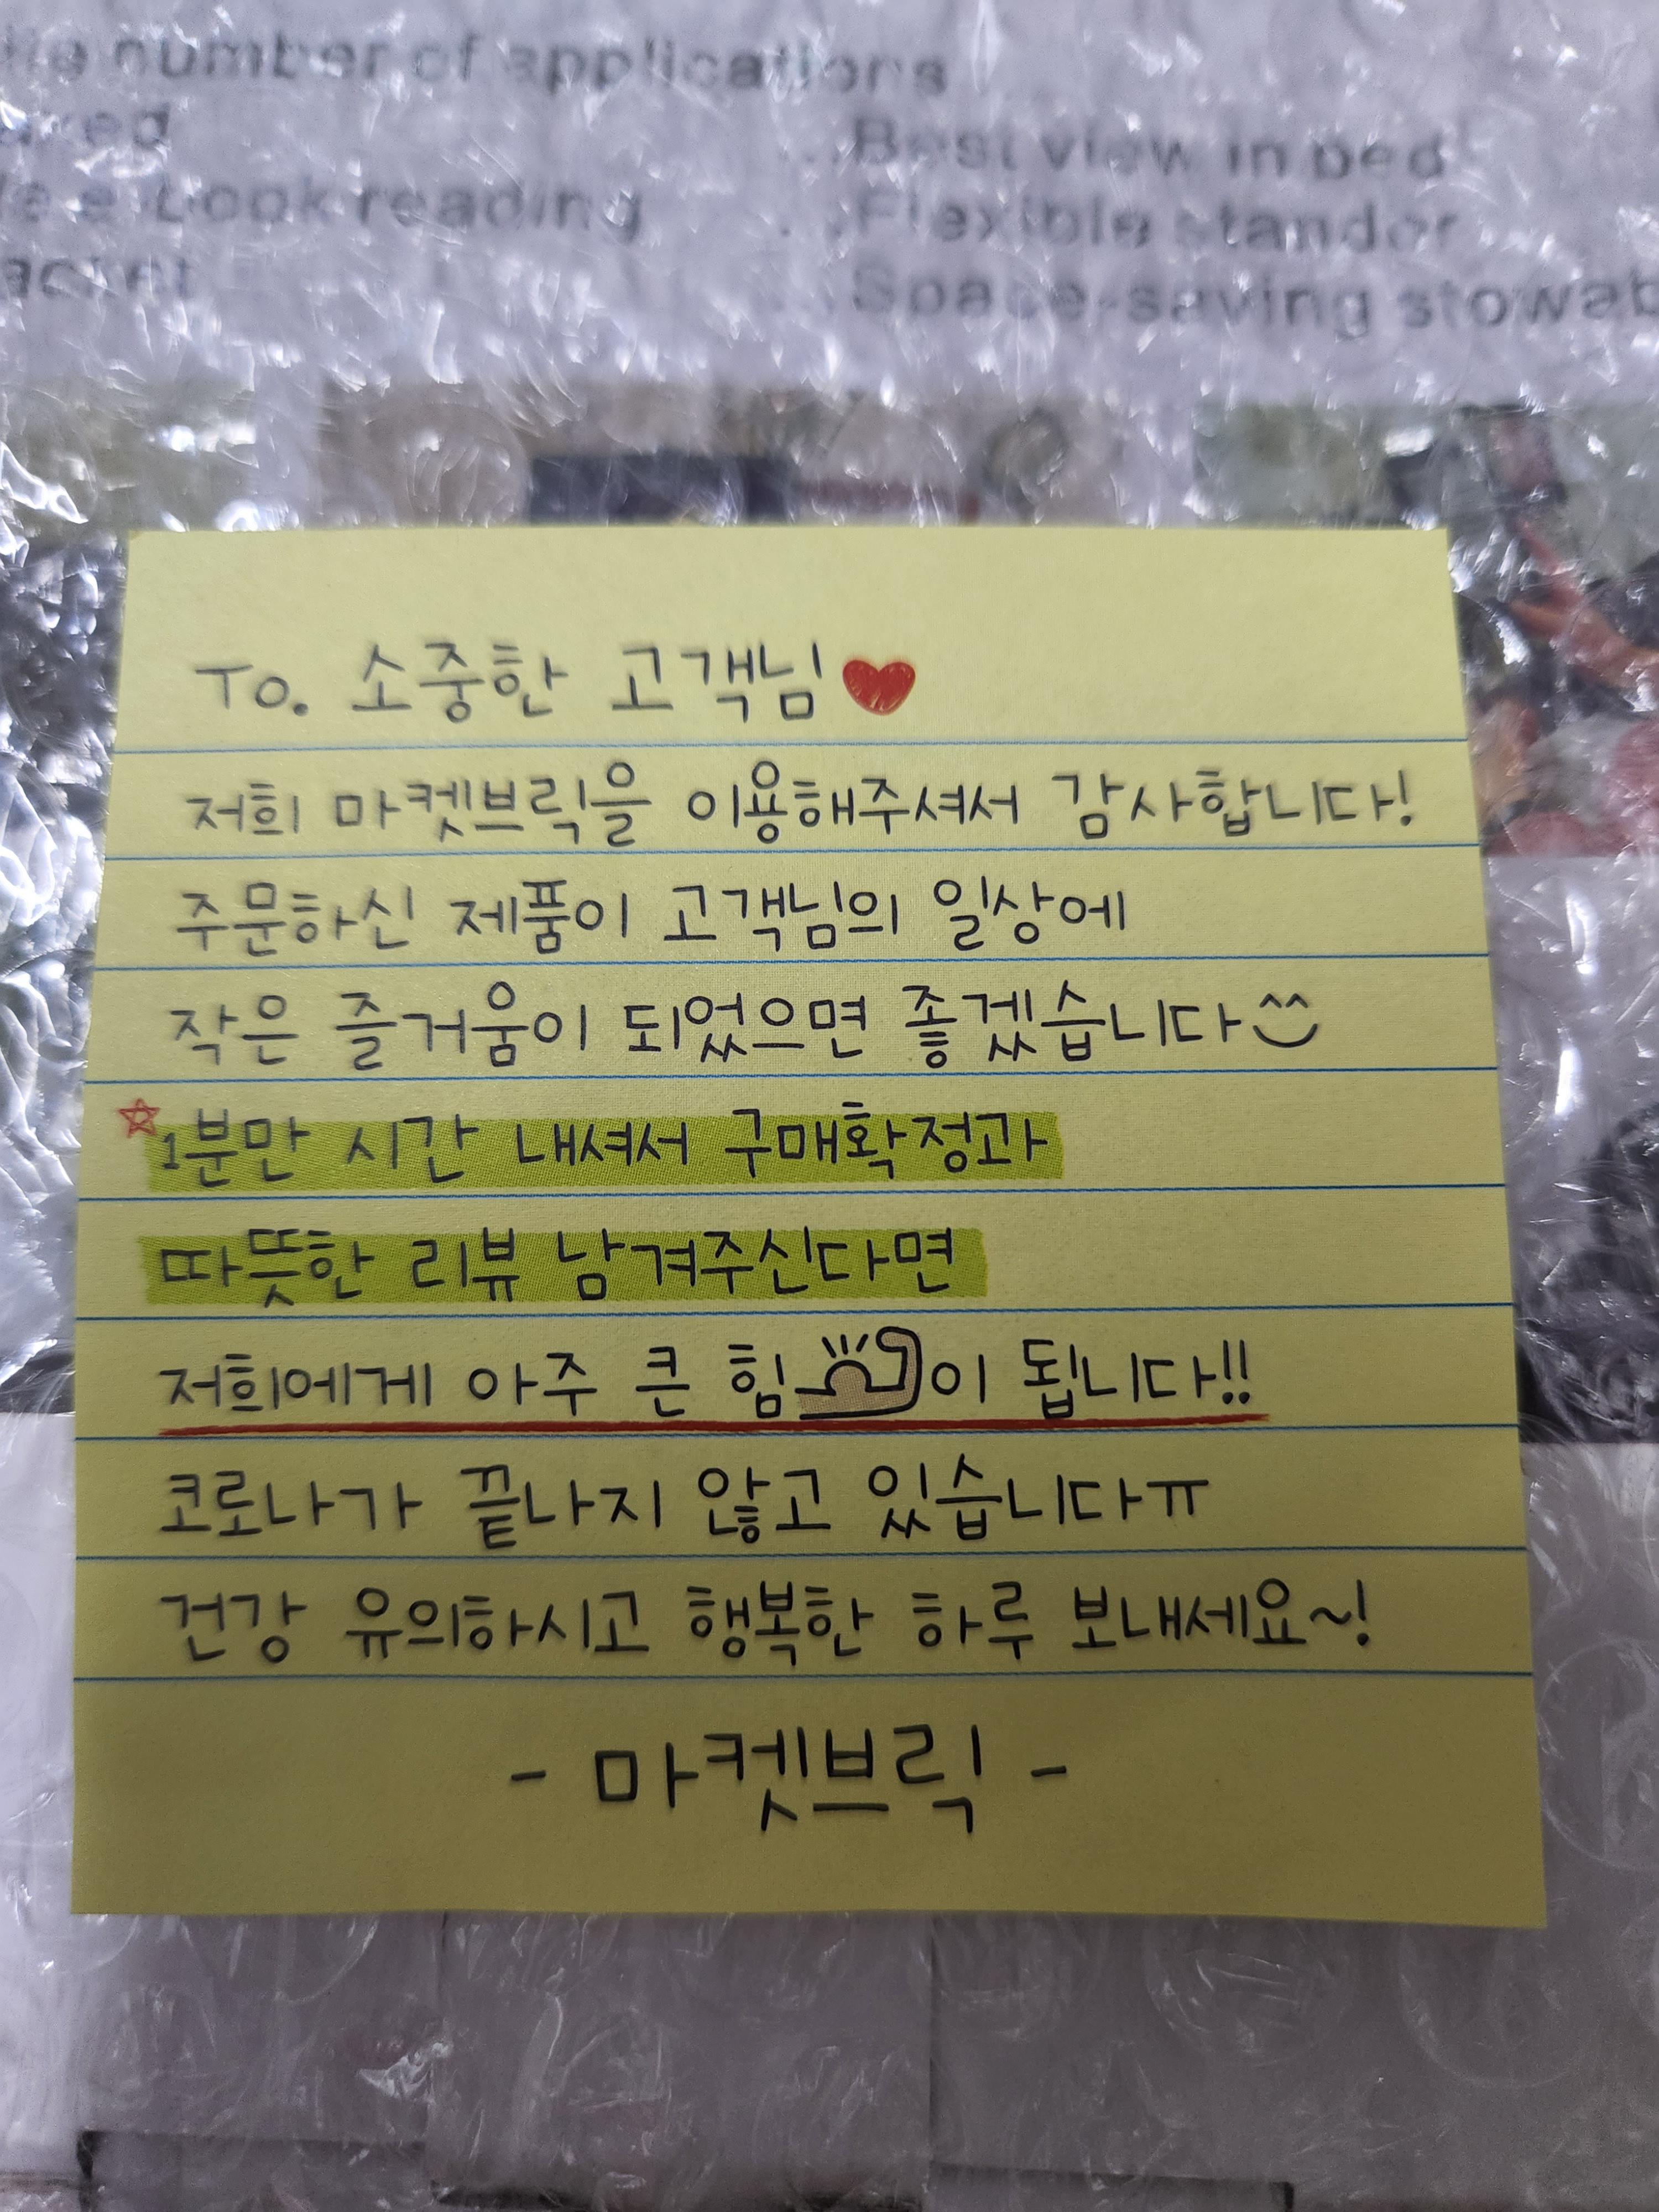 number of applications
Best view in bed
reading
Flexible
Space-saving
To. 소중한 고객님
저희 마켓브릭을 이용해주셔서 감사합니다!
주문하신 제품이 고객님의 일상에
작은 즐거움이 되었으면 좋겠습니다^^
1분만 시간 내셔서 구매확정과
따뜻한 리뷰 남겨주신다면
저희에게 아주 큰 힘이 됩니다!!
코로나가 끝나지 않고 있습니다ㅠ
건강 유의하시고 행복한 하루 보내세요~!
- 마켓브릭 -